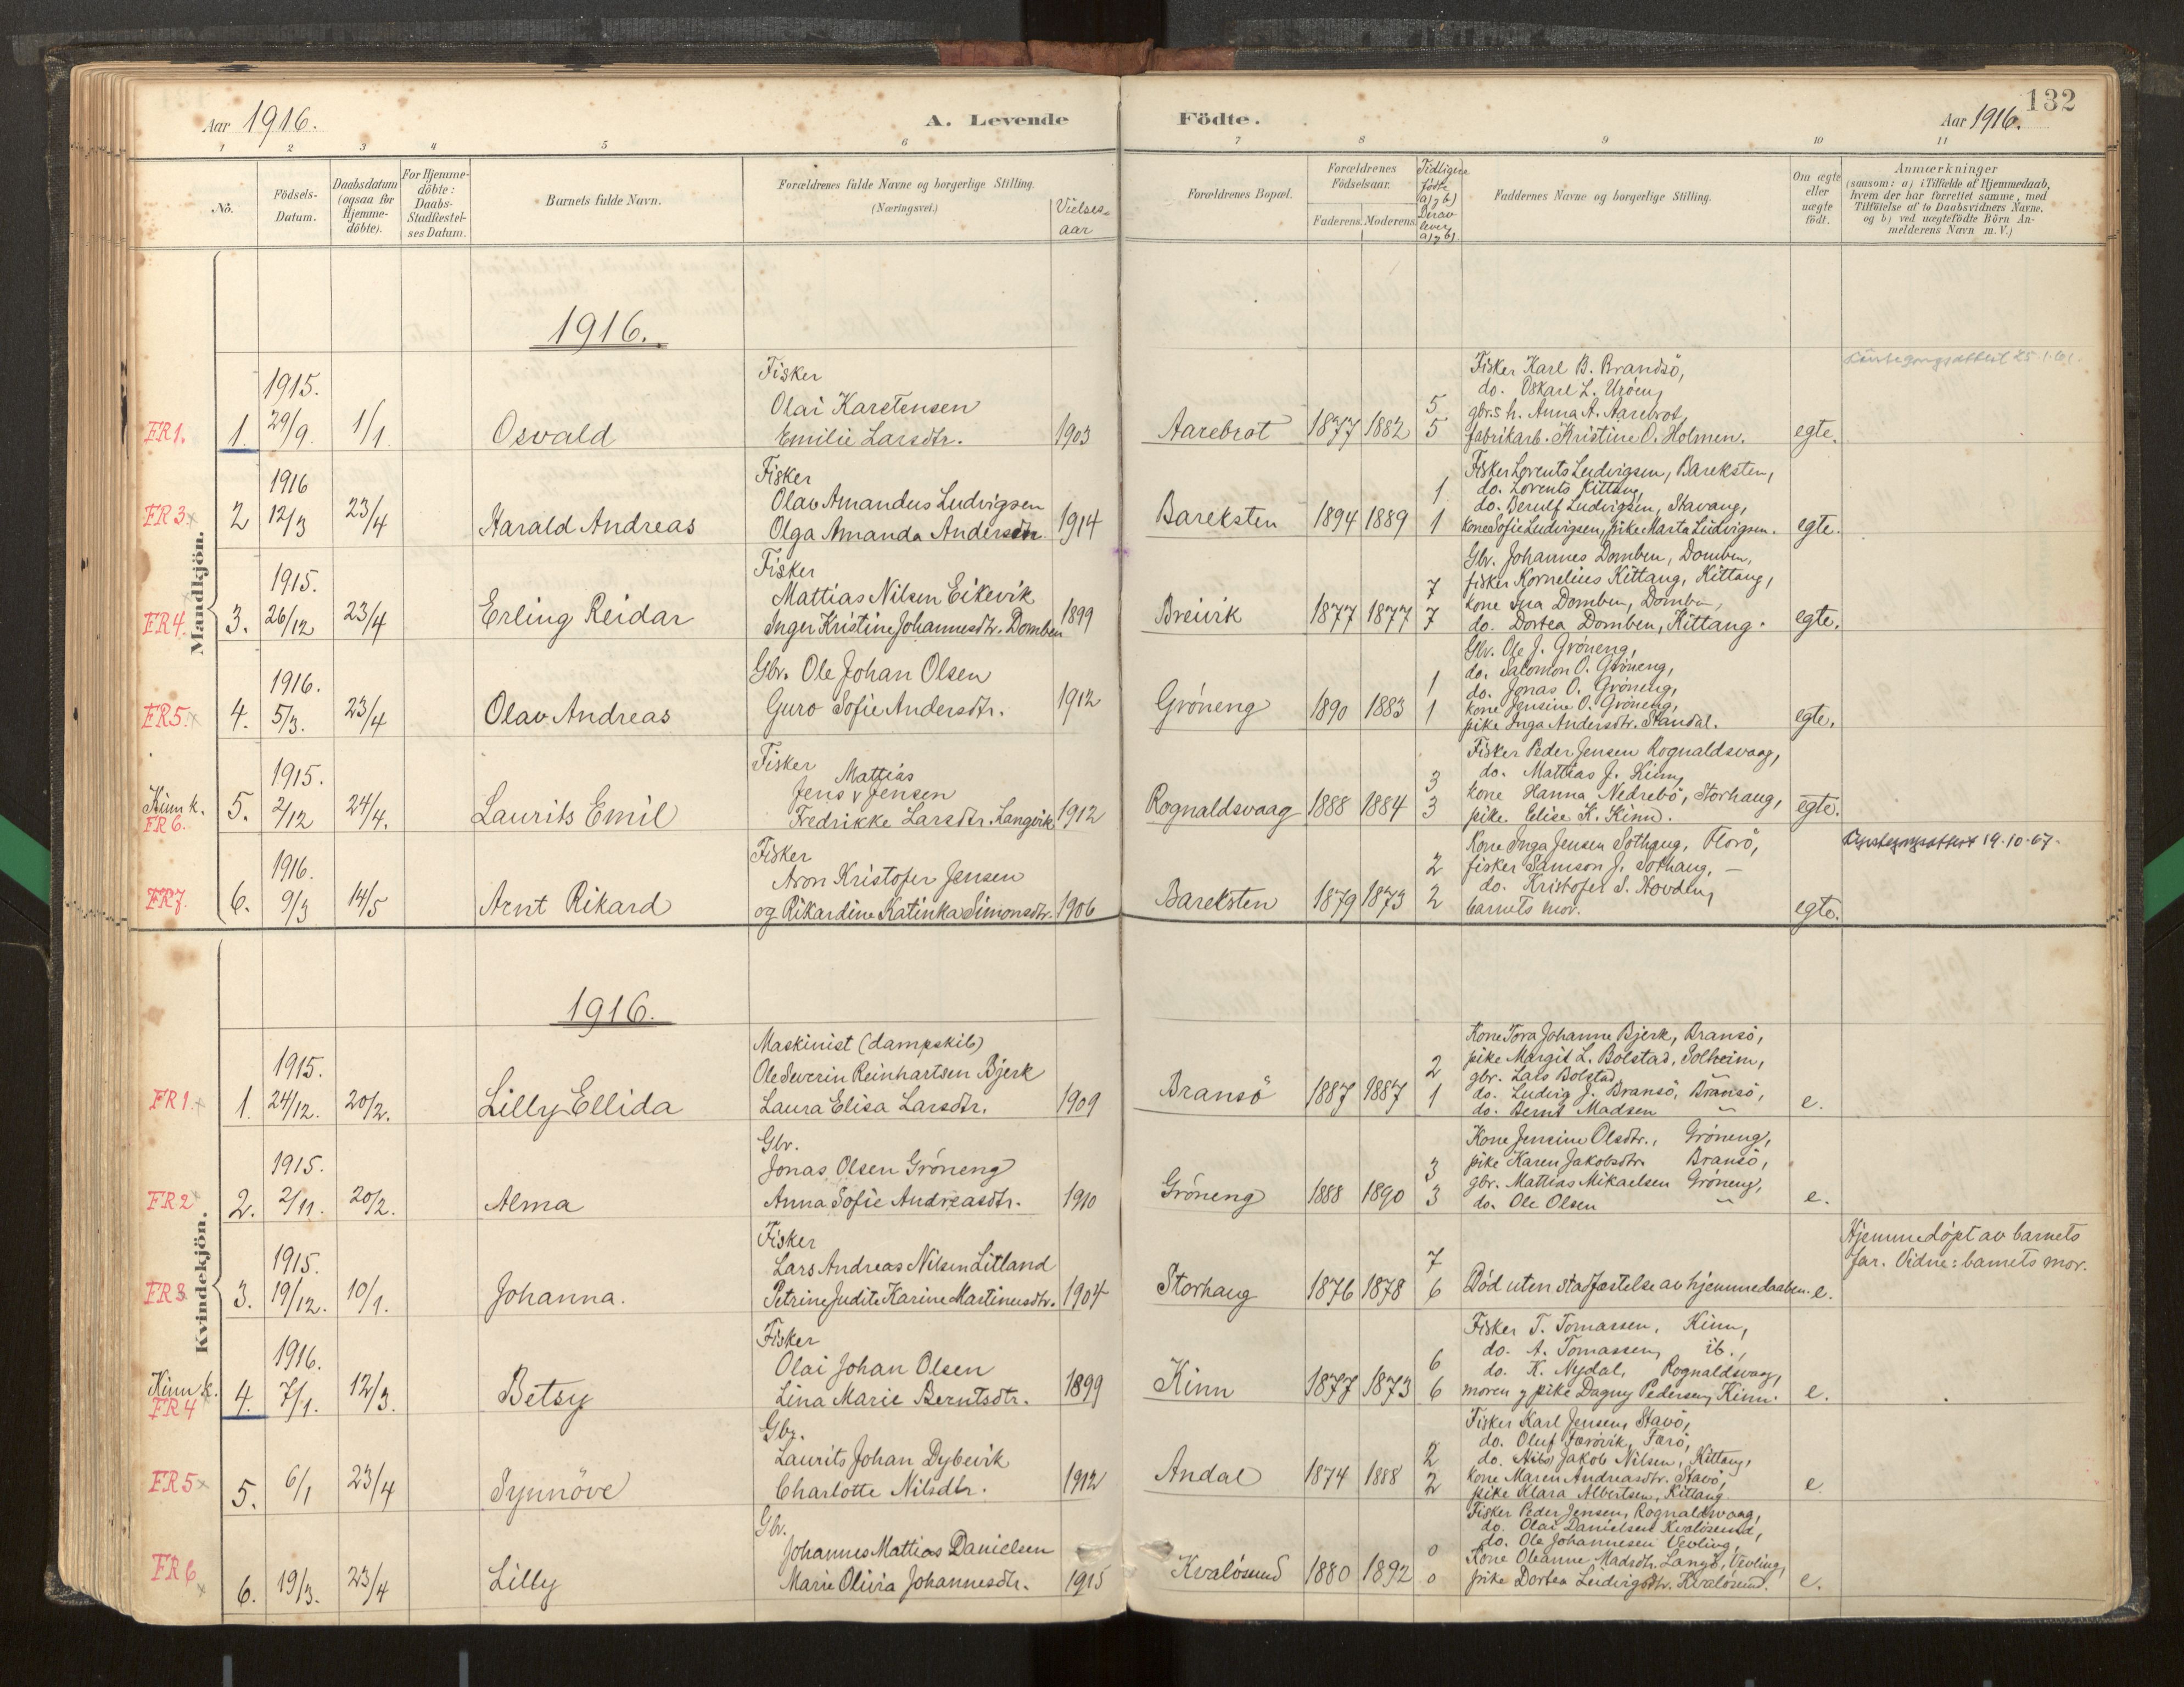 132
Aar 1916.
A. Levende
Födte.
Aar 1916.
1 2 3 4 5 6 7 8 9 10 11
No.
Födsels-
Datum.
Daabsdatum
(ogsaa for
Hjemme-
döbte).
For Hjemme-
döbte:
Daabs-
Stadfæstel-
ses Datum.
Barnets fulde Navn.
Forældrenes fulde Navne og borgerlige Stilling.
(Næringsvei.)
Vielses-
aar
Forældrenes Bopæl.
Forældrenes
Födselsaar.
Faderens. Moderens.
Tidligere
födte
a) g b)
Derav
lever
a) g b)
Faddernes Navne og borgerlige Stilling.
Om ægte
eller
uægte
födt.
Anmærkninger
(saasom: a) i Tilfælde af Hjemmedaab,
hvem der har forrettet samme, med
Tilföielse af to Daabsvidners Navne.
og b) ved uægtefödte Börn An-
melderens Navn m. V.)
Mandkjön.
1916.
FR 1.
1.
1915.
29/9.
1/1.
Osvald
Fisker
Olai Karstensen
Emilie Larsdtr.
1903
Aarebrot
1877 1882
5
5
Fisker Karl B. Brandsö,
do. Oskar L. Uröen,
gbr.s h. Anna A. Aarebrot,
fabrikarb. Kristine O. Holmen.
egte.
FR 3
2
1916
12/3
23/4
Harald Andreas
Fisker
Olav Amandus Ludvigsen
Olga Amanda Andersdtr.
1914
Bareksten
1894 1889
1
1
Fisker Lorents Ludvigsen, Bareksten,
do. Lorents Kittang,
do. Berulf Ludvigsen, Stavang,
kone Sofie Ludvigsen, pike Marta Ludvigsen.
egte.
FR 4.
3.
1915.
26/12
23/4
Erling Reidar
Fisker
Mattias Nilsen Eikevik
Inger Kristine Johannesdtr. Domben
1899
Breivik
1877 1877
7
7
Gbr. Johannes Domben, Domben,
fisker Kornelius Kittang, Kittang,
kone Ina Domben, Domben,
do. Dortea Domben, Kittang.
egte.
FR 5.
4.
1916.
5/3.
23/4
Olav Andreas
Gbr. Ole Johan Olsen
Guro Sofie Andersdtr.
1912
Gröneng
1890 1883
1
1
Gbr. Ole J. Gröneng,
do. Salomon O. Gröneng,
do. Jonas O. Gröneng,
kone Jensine O. Gröneng,
pike Inga Andersdtr. Standal.
egte.
Kinn k.
FR 6.
5.
1915.
2/12
24/4.
Laurits Emil
Fisker
Mattias
Jens v Jensen
Fredrikke Larsdtr. Langvik
1912
Rognaldsvaag
1888 1884
3
3
Fisker Peder Jensen Rognaldsvaag,
do. Mattias J. Kinn,
kone Hanna Nedrebö, Storhaug,
pike Elise K. Kinn.
egte.
FR 7.
6.
1916.
9/3
14/5
Arnt Rikard
Fisker
Aron Kristofer Jensen
og Rikardine Katinka Simonsdtr.
1906
Bareksten
1879 1873
2
2
Kone Inga Jensen Solhaug, Florö,
fisker Samson J. Solhaug, –
do. Kristofer S. Hovden,
barnets mor.
egte.
19.10.67.
Kvindekjön.
1916.
FR 1.
1.
1915.
24/12.
20/2.
Lilly Ellida
Maskinist (dampskib)
Ole Severin Reinhartsen Bjerk
Laura Elisa Larsdtr.
1909
Bransö
1887 1887
2
1
Kone Tora Johanne Bjerk, Bransö,
pike Margit L. Bolstad, Solheim,
gbr. Lars Bolstad, –
do. Ludvig J. Bransö, Bransö,
do. Bernt Madsen –
e.
FR 2
2.
1915.
2/11.
20/2.
Alma
Gbr.
Jonas Olsen Gröneng
Anna Sofie Andreasdtr.
1910
Gröneng
1888 1890
3
3
Kone Jensine Olsdtr., Gröneng,
pike Karen Jakobsdtr. Bransö,
gbr. Mattias Mikaelsen Gröneng,
do. Ole Olsen –
e.
FR 3
3.
1915.
19/12.
10/1.
Johanna.
Fisker
Lars Andreas Nilsen Litland
Petrine Judite Karine Martinusdtr.
1904
Storhaug
1876 1878
7
6
Död uten stadfæstelse av hjemmedaaben.
e.
Hjemmedöpt av barnets
far. Vidne: barnets mor.
Kinn k.
FR 4
4.
1916.
7/1.
12/3.
Betsy
Fisker
Olai Johan Olsen
Lina Marie Berntsdtr.
1899
Kinn
1877 1873
6
6
Fisker T. Tomassen, Kinn,
do. A. Tomassen, ib.,
do. K. Nydal, Rognaldsvaag,
moren g pike Dagny Pedersen, Kinn.
e.
FR 5
5.
6/1
23/4
Synnöve
Gbr.
Laurits Johan Dybevik
Charlotte Nilsdtr.
1912
Andal
1874 1888
2
2
Fisker Karl Jensen, Stavö,
do. Oluf Færövik, Færö,
do. Nils Jakob Nilsen, Kittang,
kone Maren Andreasdtr. Stavö,
pike Klara Albertsen, Kittang.
e.
FR 6
6.
19/3.
23/4
Lilly
Gbr.
Johannes Mattias Danielsen
Marie Olivia Johannesdtr.
1915
Kvalösund
1880 1892
0
0
Fisker Peder Jensen, Rognaldsvaag,
do. Olai Danielsen Kvalösund,
do. Ole Johannesen Vevling,
Kone Oleanne Madsdtr. Langö, Vevling,
pike Dortea Ludvigsdtr. Kvalösund.
e.